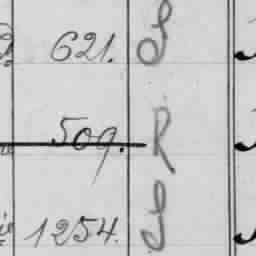 621. S
509. R
1254. S